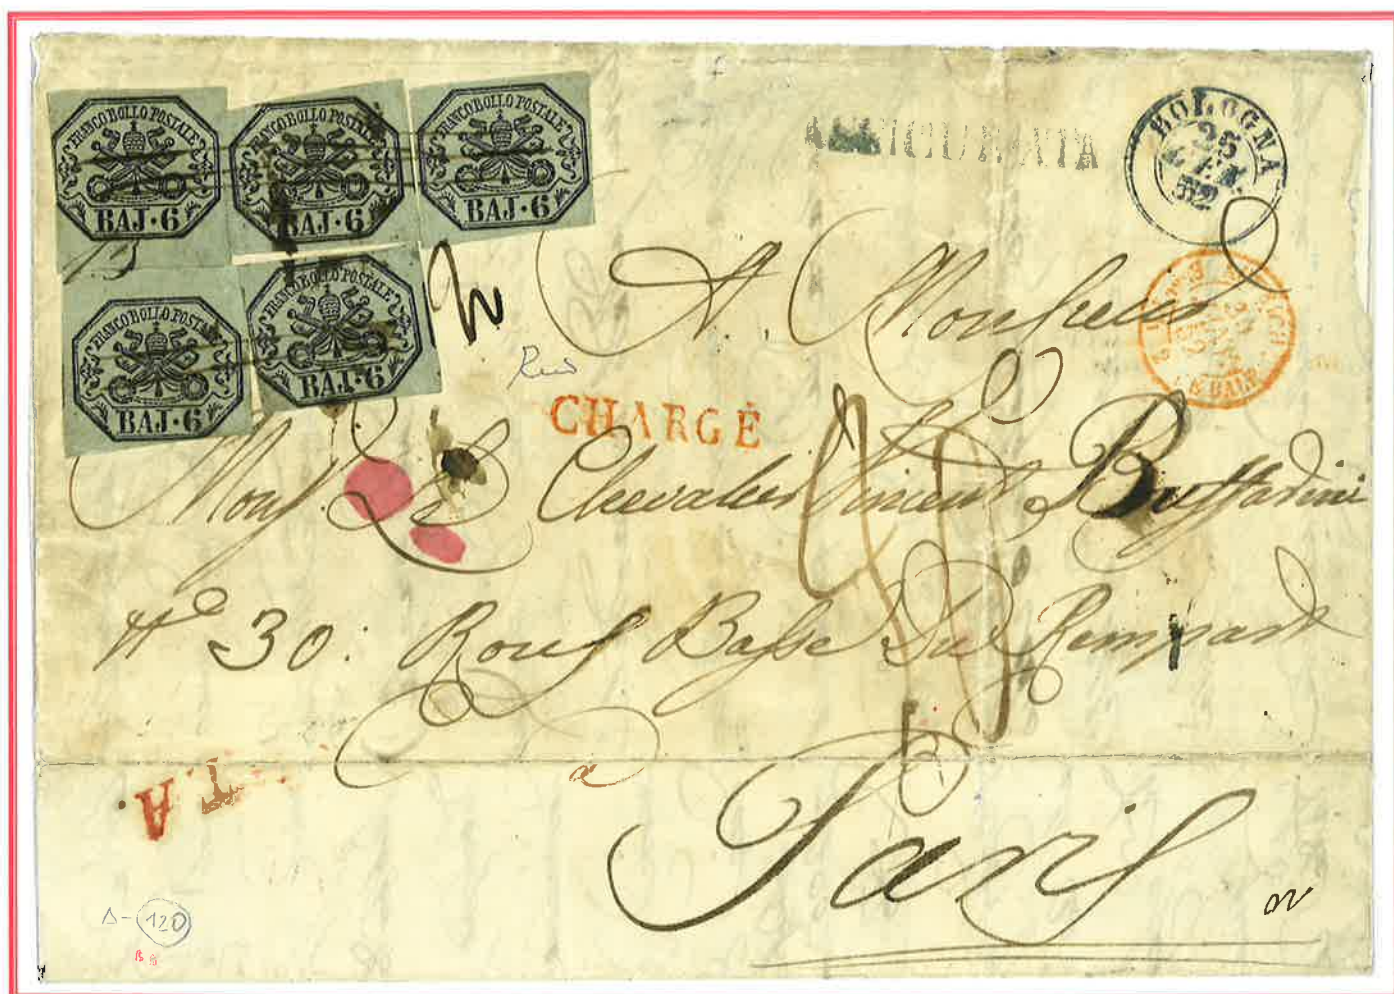 FRANCO BOLLO POSTALE
BAJ·6
FRANCO BOLLO POSTALE
BAJ·6
FRANCO BOLLO POSTALE
BAJ·6
FRANCO BOLLO POSTALE
BAJ·6
FRANCO BOLLO POSTALE
BAJ·6
ASSICURATA
BOLOGNA
26
GEN.
52
A. Monsieur
CHARGÉ
Chevalier Vincent Buffarini
N° 30: Rous Basse Du Rempart
a
Paris
120